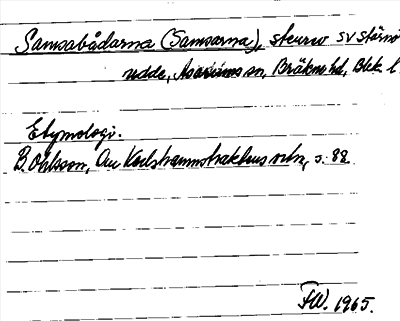 Samsabådarna (Samsarna), stenrev SV Stärnö
udde, Asarums sn, Bräkne hd, Blek. l
Etymologi.
B. Ohlsson, Om Karlshamnstraktens ortn, s. 82
FW. 1965.